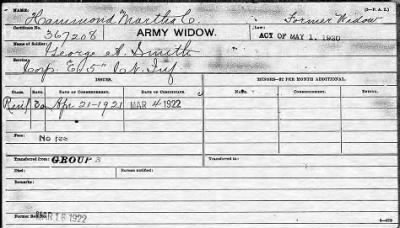 (3-P. A. I.)
Name: Hammond Martha C. Former Widow
Certificate No. 367208 ARMY WIDOW. Law: ACT OF MAY 1, 1920
Name of Soldier: George A. Smith
Service: Corp. E, 5" Inf
ISSUES. MINORS—$2 PER MONTH ADDITIONAL.
CLASS. RATE. DATE OF COMMENCEMENT. DATE OF CERTIFICATE. NAME. COMMENCEMENT. ENDING.
30 Apr 21-1921 MAR 4 1922
Fees: No fee
Transferred from: GROUP 3 Transferred to:
Died: Bureau notified:
Remarks:
Former Roll No. MAR 16 1922